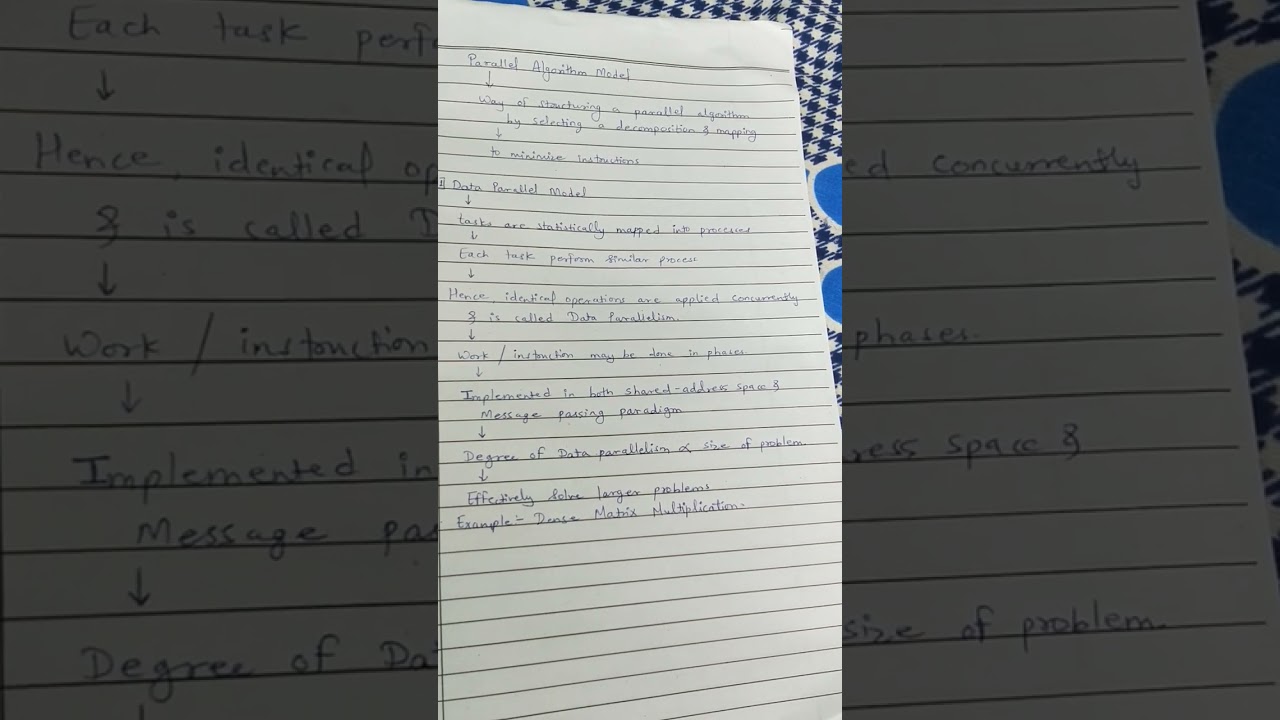 Parallel Algorithm Model
↓
Way of structuring a parallel algorithm
by selecting a decomposition & mapping
↓
to minimize instructions
1] Data Parallel Model
↓
tasks are statistically mapped into processes
↓
Each task perform similar process
↓
Hence, identical operations are applied concurrently
& is called Data Parallelism.
↓
Work / instruction may be done in phases.
↓
Implemented in both shared-address space &
Message passing paradigm
↓
Degree of Data parallelism ∝ size of problem.
↓
Effectively solve larger problems
Example:- Dense Matrix Multiplication.